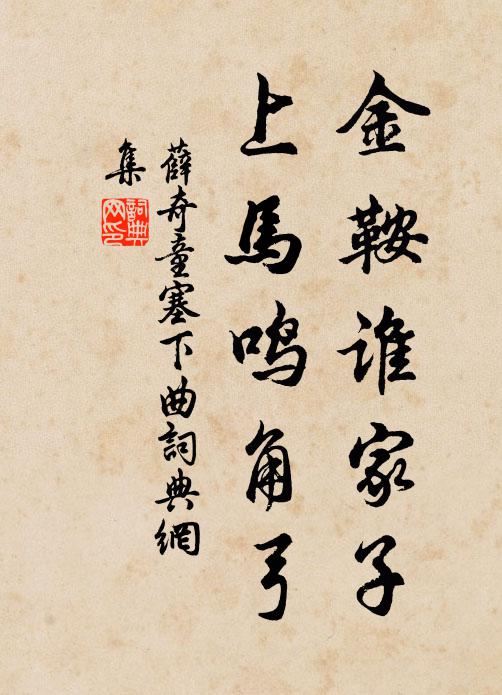 金鞍谁家子
上馬鸣角弓
薛奇童塞下曲詞典網
集
詞典
网印